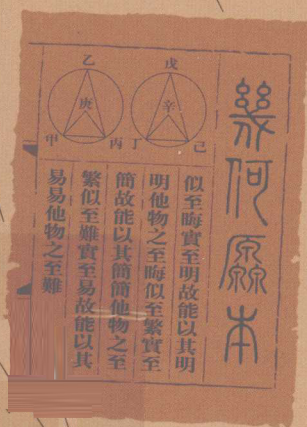 幾何原本
乙
庚
甲
丙
戊
辛
丁
己
似至晦實至明故能以其明
明他物之至晦似至繁實至
簡故能以其簡簡他物之至
繁似至難實至易故能以其
易易他物之至難